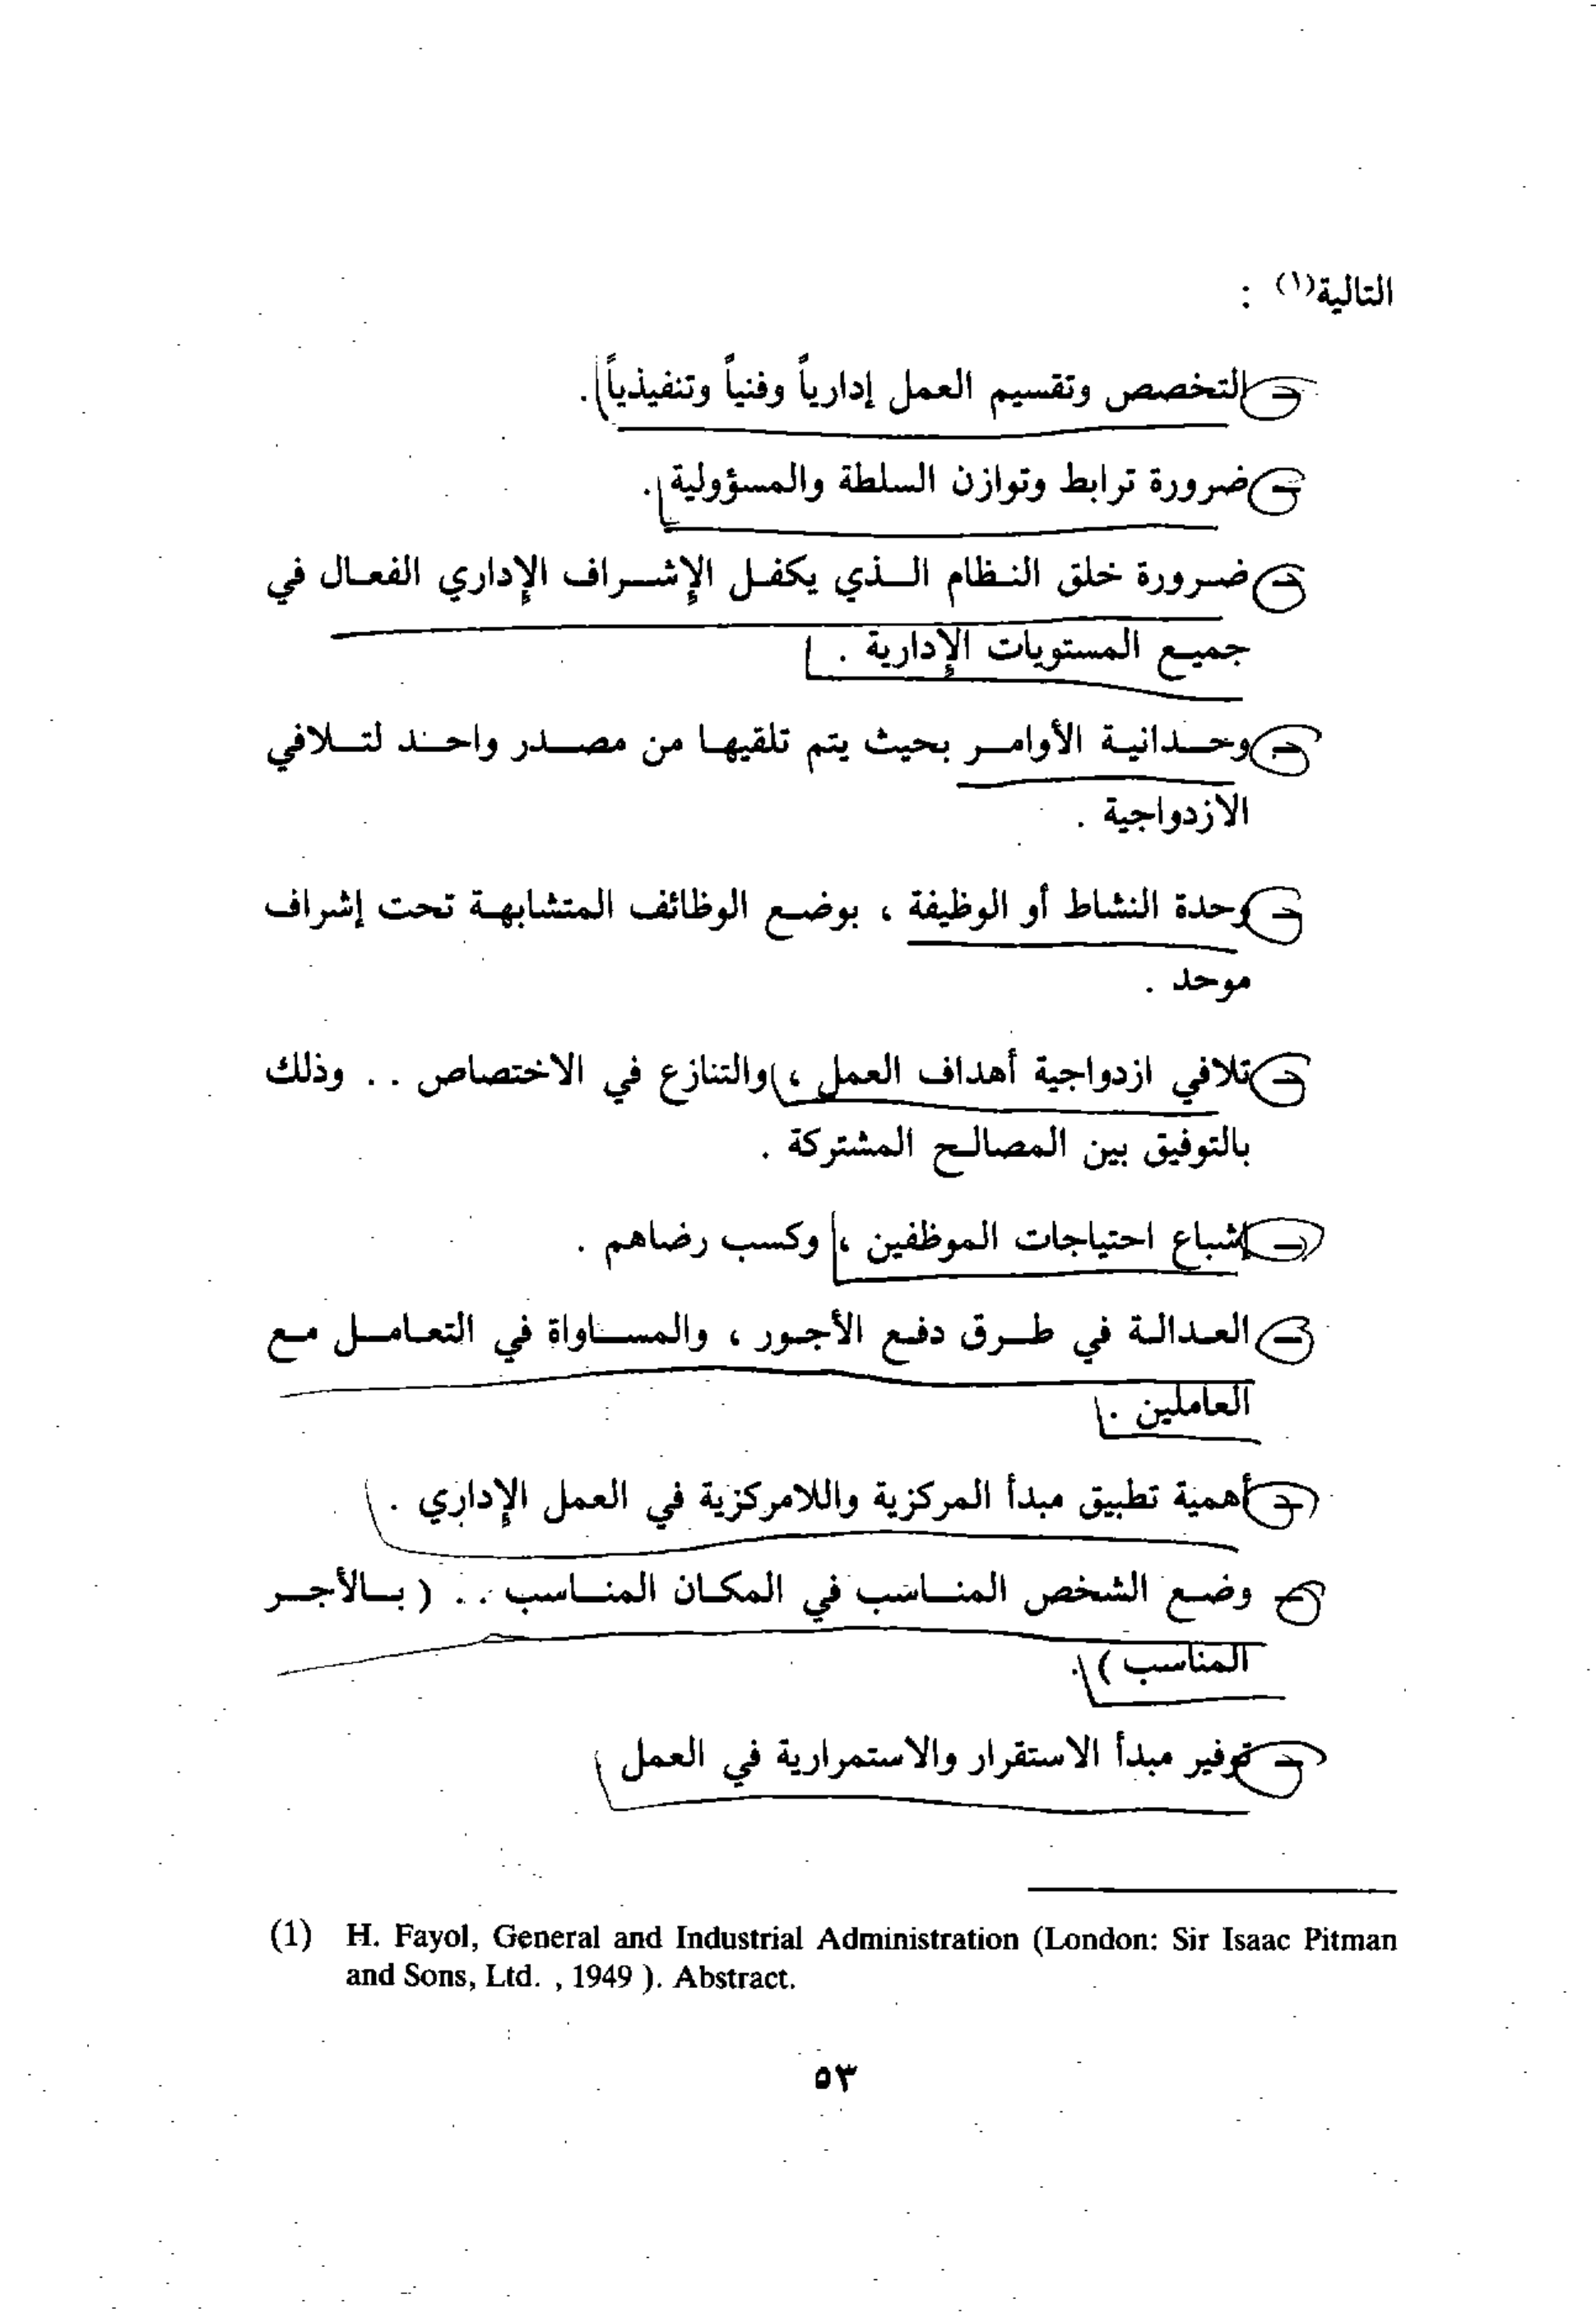 التالية(١) :
- التخصص وتقسيم العمل إدارياً وفنياً وتنفيذياً .
- ضرورة ترابط وتوازن السلطة والمسؤولية .
- ضرورة خلق النظام الذي يكفل الإشراف الإداري الفعال في
جميع المستويات الإدارية .
- وحدانية الأوامر بحيث يتم تلقيها من مصدر واحد لتلافي
الازدواجية .
- وحدة النشاط أو الوظيفة ، بوضع الوظائف المتشابهة تحت إشراف
موحد .
- تلافي ازدواجية أهداف العمل ، والتنازع في الاختصاص . . وذلك
بالتوفيق بين المصالح المشتركة .
- إشباع احتياجات الموظفين ، وكسب رضاهم .
- العدالة في طرق دفع الأجور ، والمساواة في التعامل مع
العاملين .
- أهمية تطبيق مبدأ المركزية واللامركزية في العمل الإداري .
- وضع الشخص المناسب في المكان المناسب . . ( بالأجر
المناسب ) .
- توفير مبدأ الاستقرار والاستمرارية في العمل
(1) H. Fayol, General and Industrial Administration (London: Sir Isaac Pitman
and Sons, Ltd. , 1949 ). Abstract.
٥٣